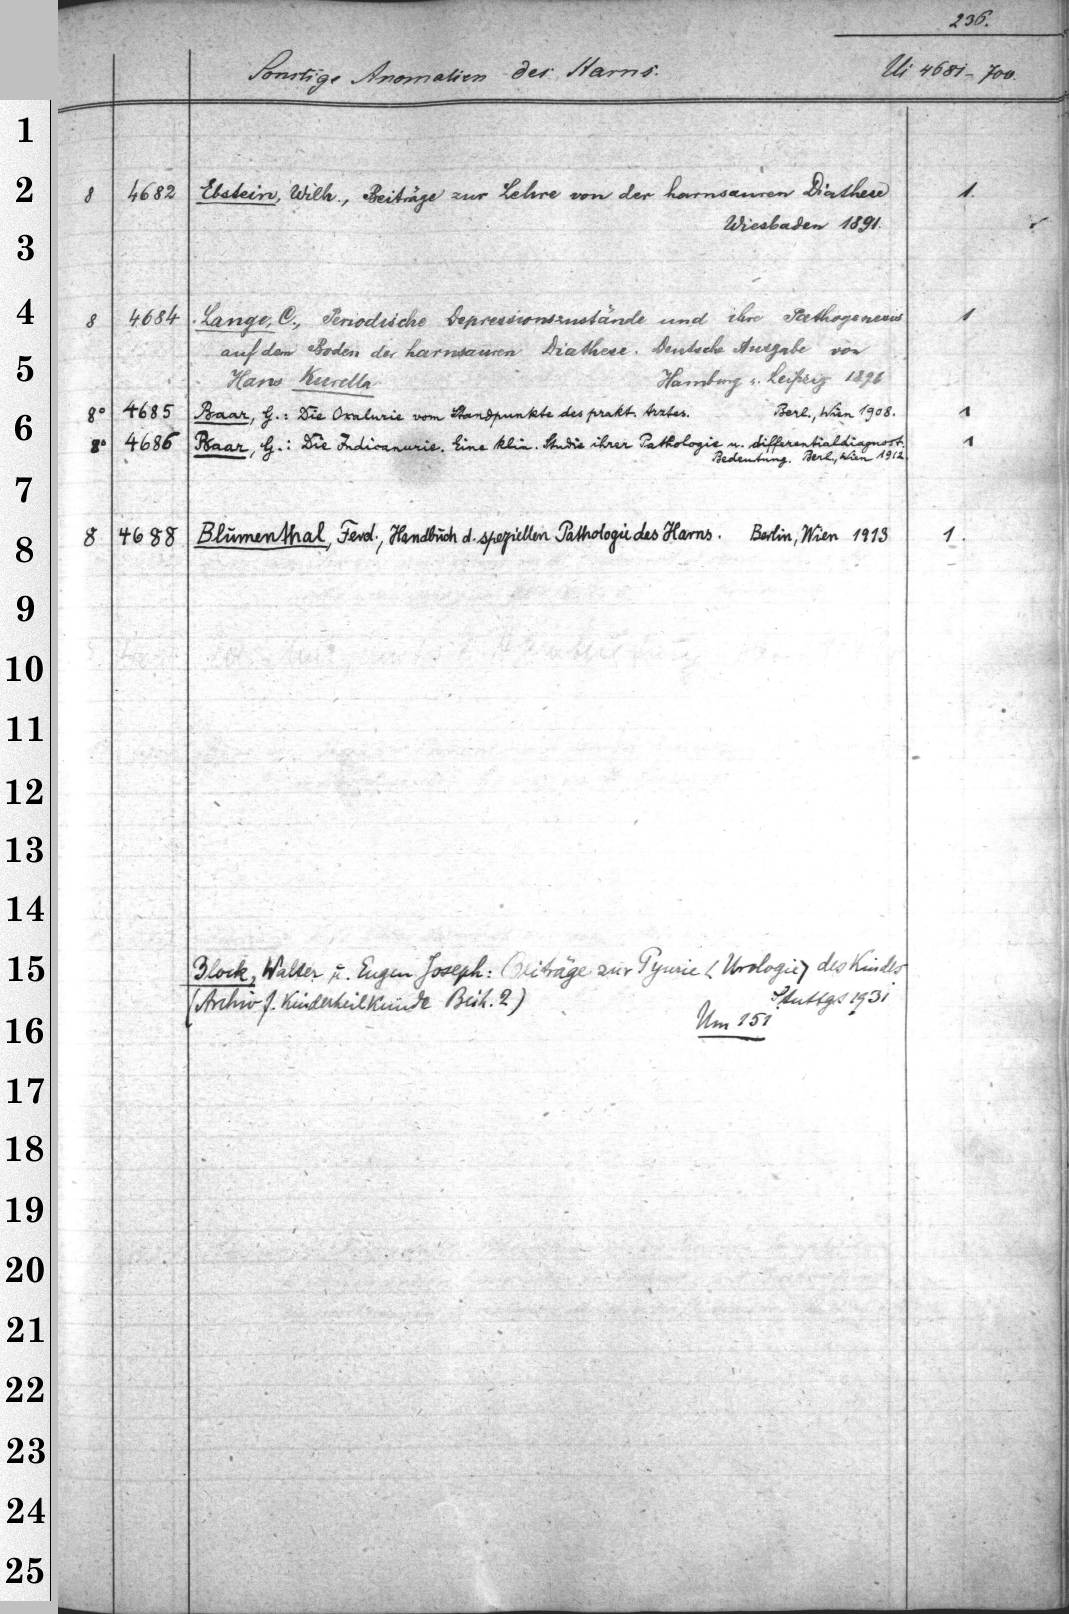 236.
Sonstige Anomalien des Harns. Ui 4681-700.
1
2 8 4682 Ebstein, Wilh., Beiträge zur Lehre von der harnsauren Diathese 1.
Wiesbaden 1891.
3
4 8 4684 Lange, C., Periodische Depressionszustände und ihre Pathogenesis 1
auf dem Boden der harnsauren Diathese. Deutsche Ausgabe von
5 Hans Kurella. Hamburg u. Leipzig 1896
8° 4685 Baar, G.: Die Oxalurie vom Standpunkte des prakt. Arztes. Berl., Wien 1908. 1
6
8° 4686 Baar, G.: Die Indicanurie. Eine klin. Studie ihrer Pathologie u. differentialdiagnost. 1
Bedeutung. Berl., Wien 1912
7
8 8 4688 Blumenthal, Ferd., Handbuch d. speziellen Pathologie des Harns. Berlin, Wien 1913 1.
9
10
11
12
13
14
15 Block, Walter u. Eugen Joseph: Beiträge zur Pyurie (Urologie) des Kindes
(Archiv f. Kinderheilkunde Beih. 2) Stuttg. 1931
16 Um 151
17
18
19
20
21
22
23
24
25